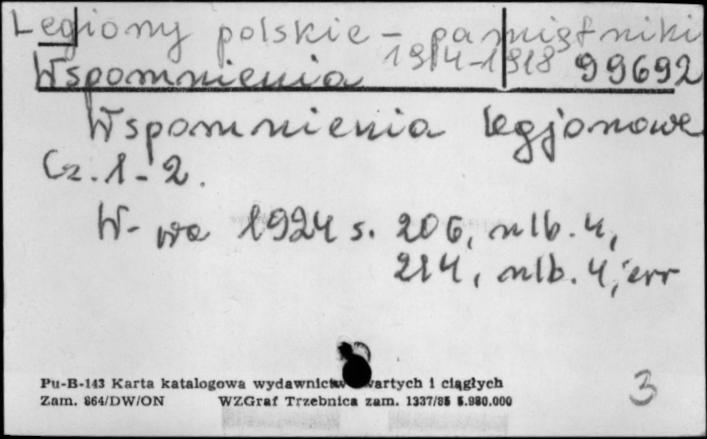 Legiony polskie - pamiętniki
1914-1918 99692
Wspomnienia
Wspomnienia legjonowe
Cz. 1-2.
W-wa 1924 s. 206, nlb. 4,
214, nlb. 4, err
Pu-B-143 Karta katalogowa wydawnictw zwartych i ciągłych
Zam. 864/DW/ON WZGraf Trzebnica zam. 1337/85 5.980.000
3